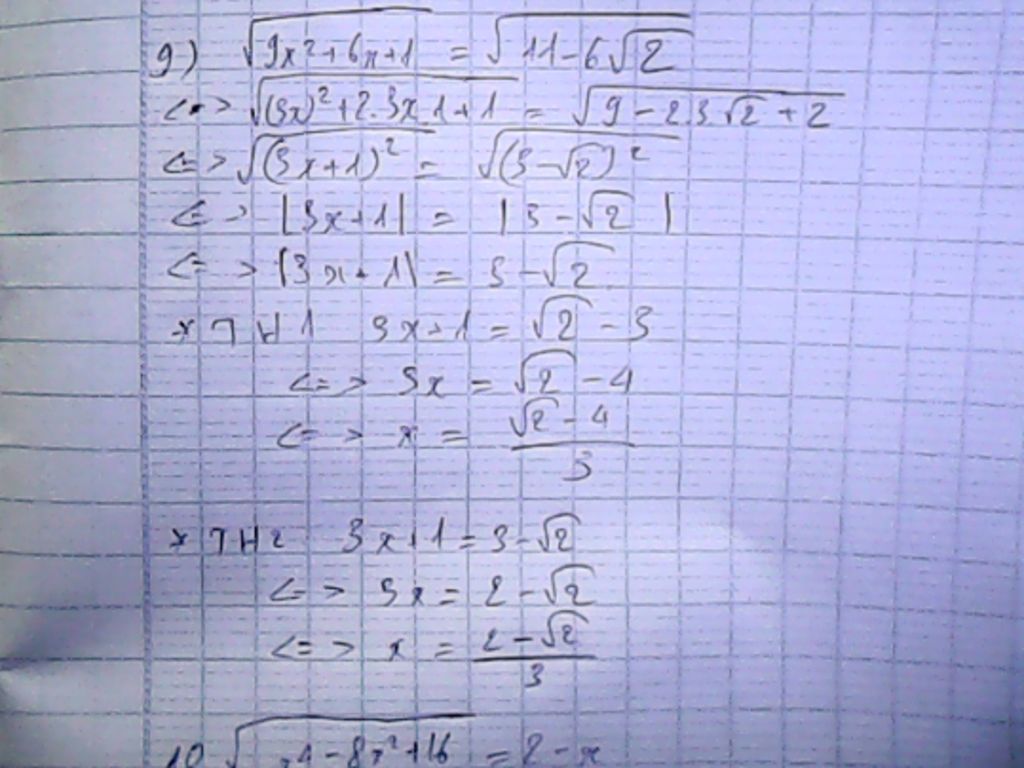 9) √(9x²+6x+1) = √(11-6√2)
<=> √((3x)²+2.3x.1+1) = √(9-2.3√2+2)
<=> √((3x+1)²) = √((3-√2)²)
<=> |3x+1| = |3-√2|
<=> |3x+1| = 3-√2
* TH1 3x+1 = √2-3
<=> 3x = √2-4
<=> x = (√2-4)/3
* TH2 3x+1 = 3-√2
<=> 3x = 2-√2
<=> x = (2-√2)/3
10 √(x4-8x²+16) = 2-x